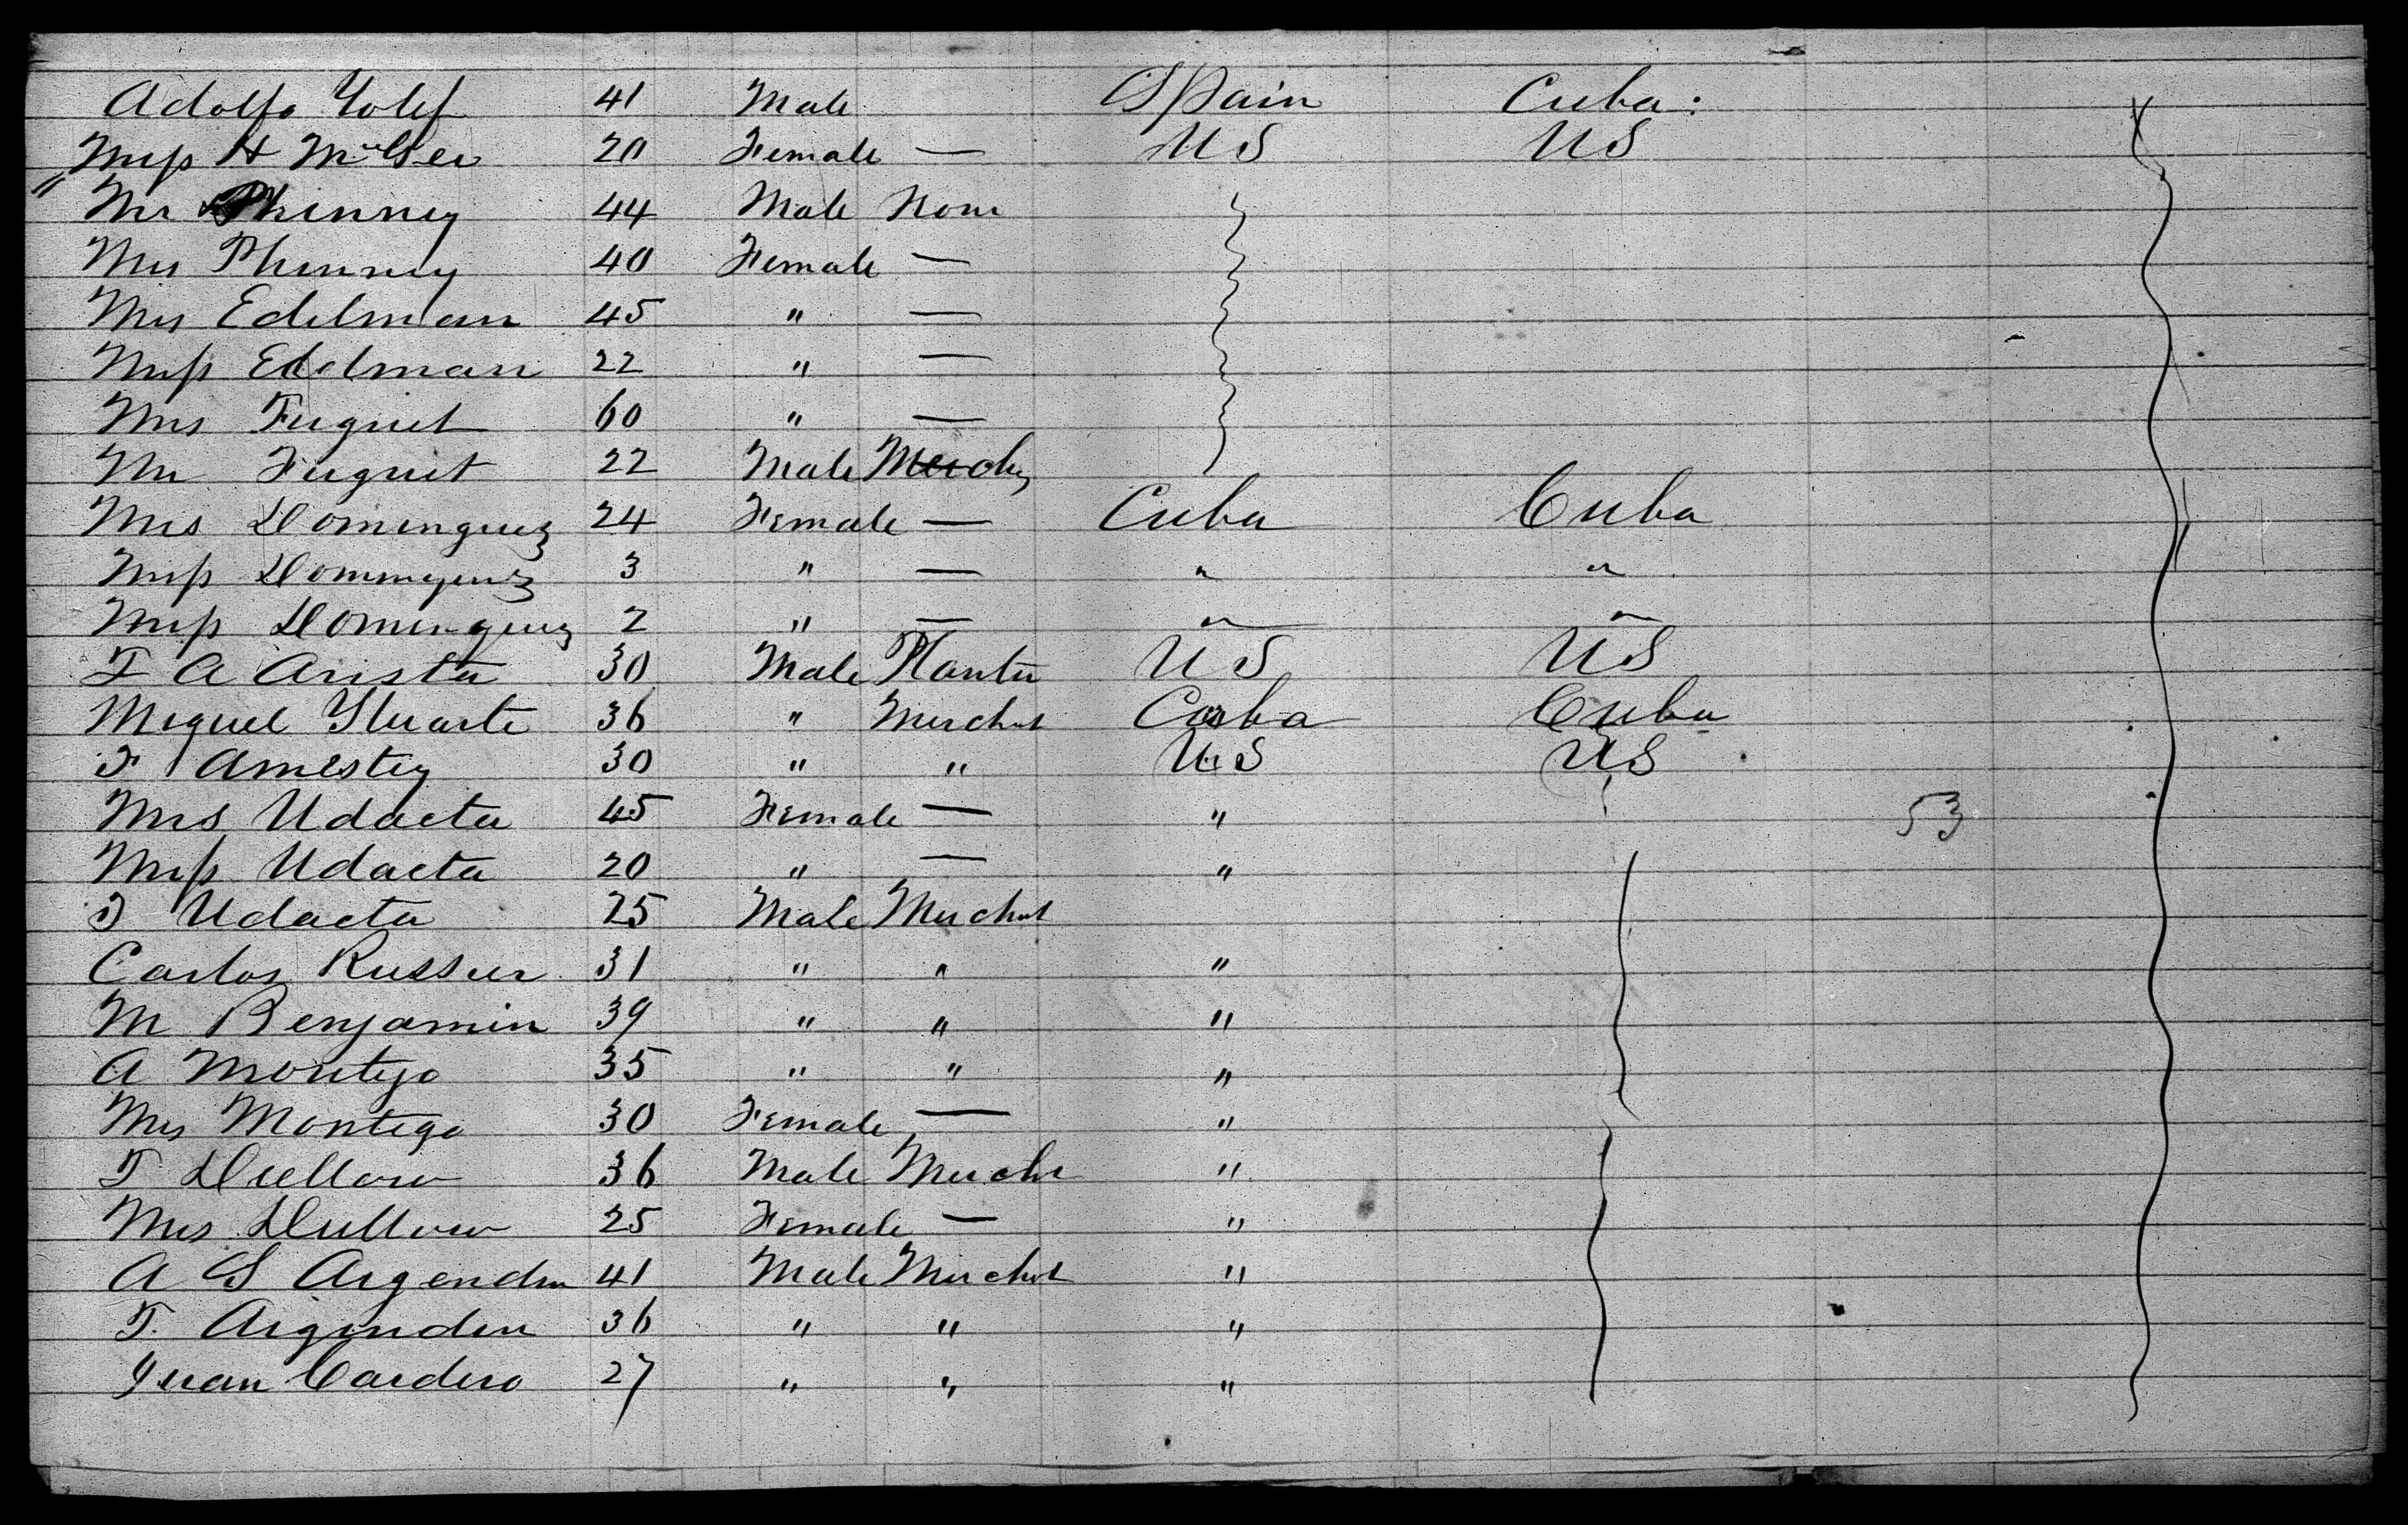 Adolfo Yolif 41 Male Spain Cuba :
Miss H McGee 20 Female — US US
" Mr Phinney 44 Male None
Mrs Phinney 40 Female —
Mrs Edelman 45 " —
Miss Edelman 22 " —
Mrs Fuguet 60 " —
Mr Fuguet 22 Male Merch
Mrs Dominguez 24 Female — Cuba Cuba
Miss Dominguez 3 " — " "
Miss Dominguez 2 " — " "
F A Arista 30 Male Planter US US
Miguel Yluarte 36 " Merchnt Cuba Cuba
F Amestey 30 " " US US
Mrs Udaeta 45 Female — " 53
Miss Udaeta 20 " — "
J Udaeta 25 Male Merchnt
Carlos Russeer 31 " " "
M Benjamin 39 " " "
A Montejo 35 " " "
Mrs Montego 30 Female — "
T Duellow 36 Male Mercht "
Mrs Dullow 25 Female — "
A S Argenden 41 Male Merchnt "
T. Argenden 36 " " "
Juan Cardero 27 " " "